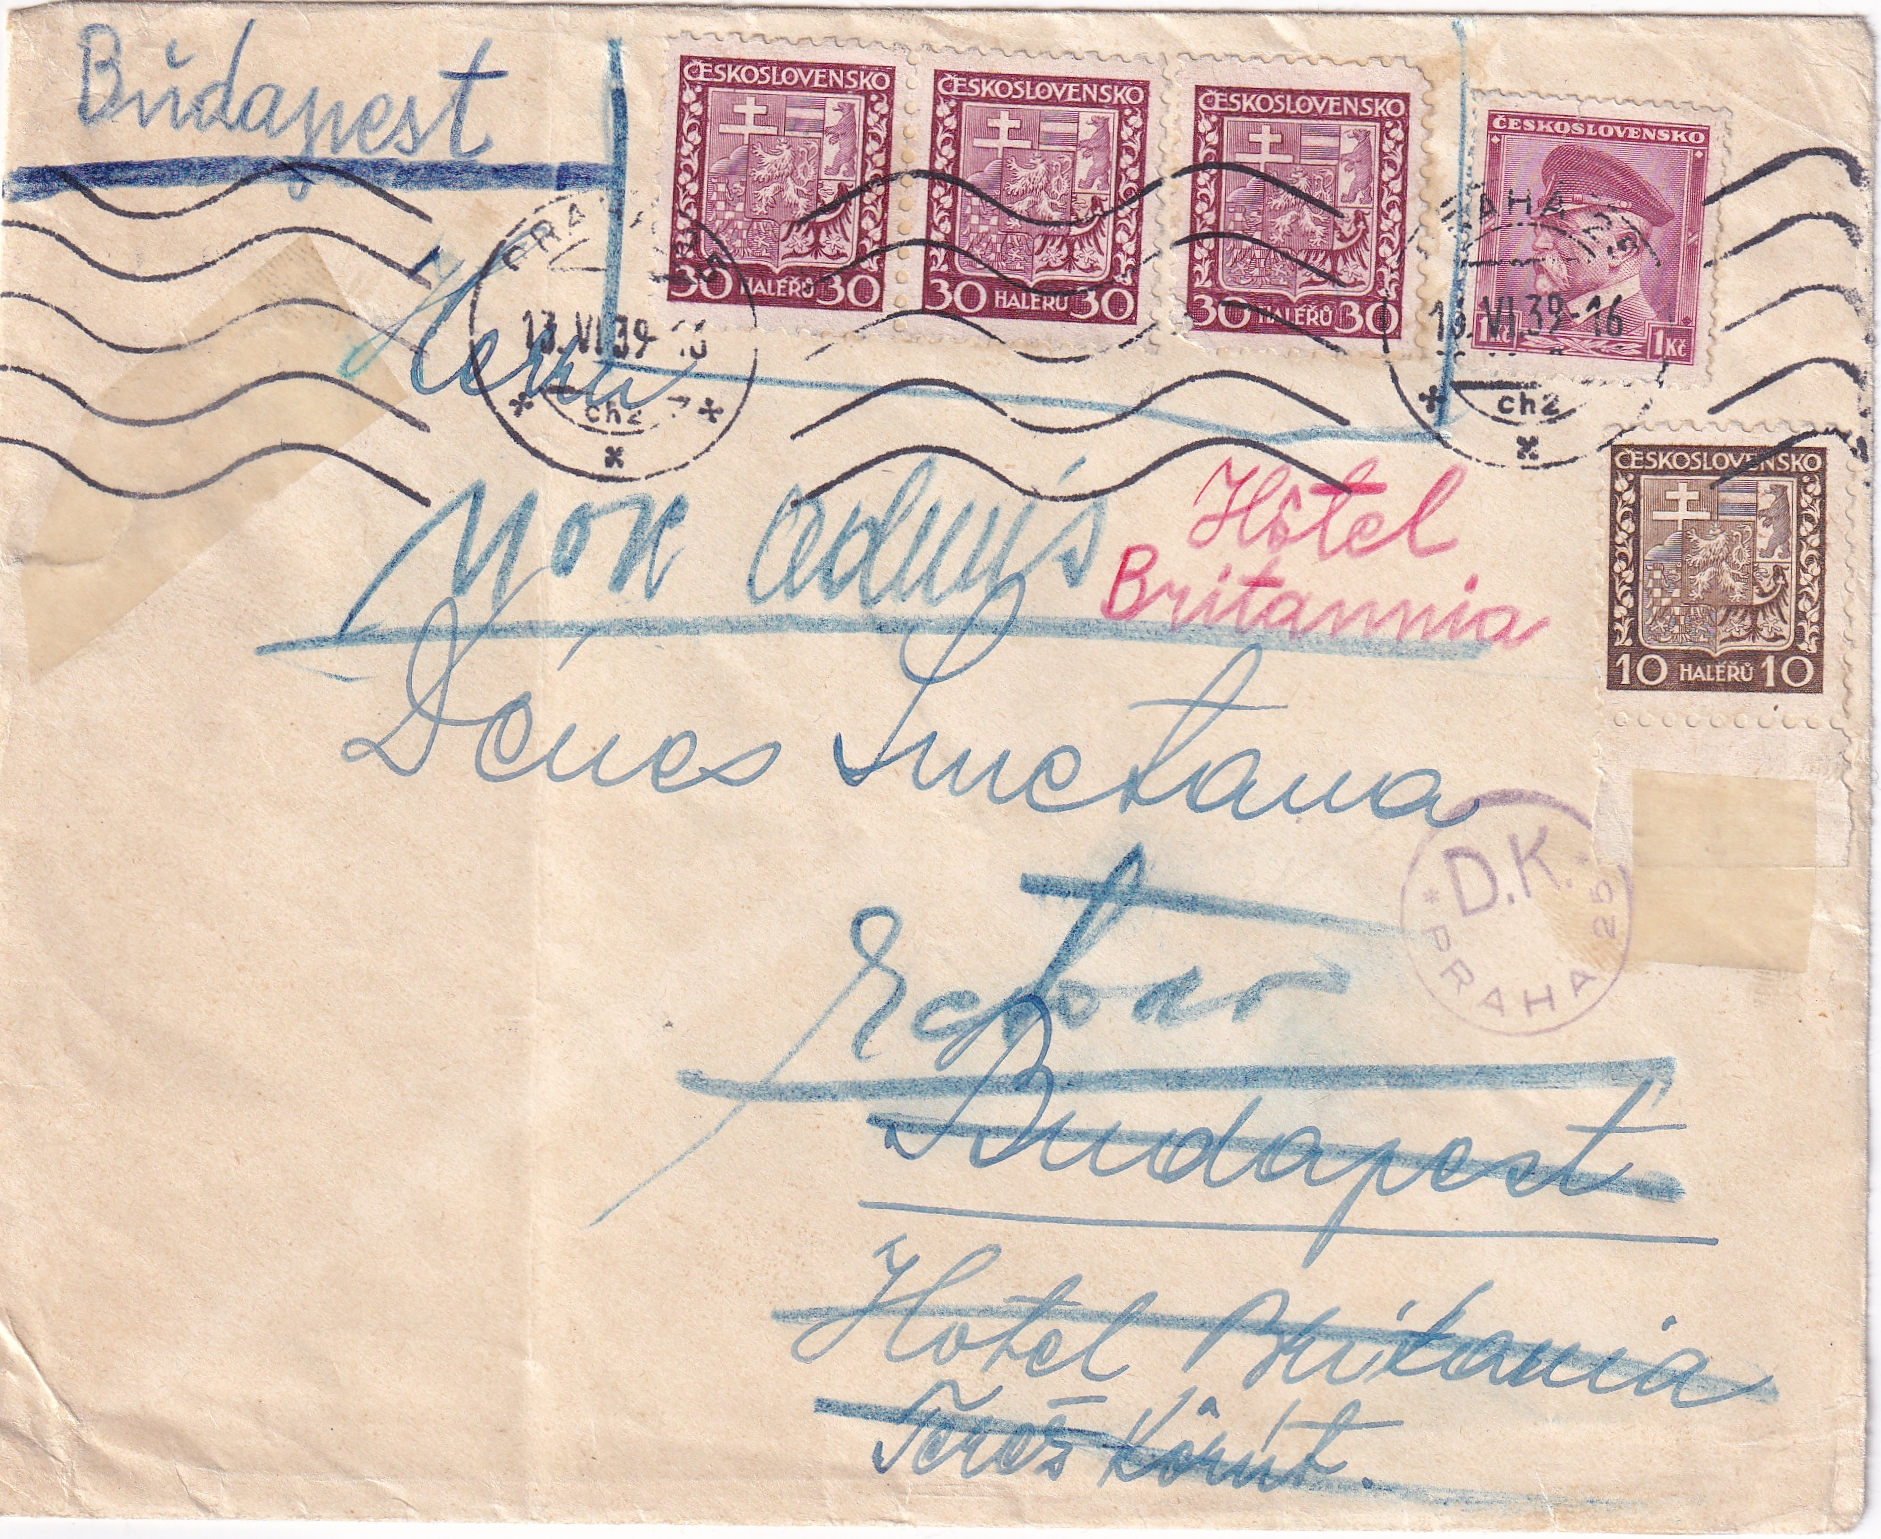 Budapest
ČESKOSLOVENSKO
30 HALÉŘŮ 30
ČESKOSLOVENSKO
30 HALÉŘŮ 30
ČESKOSLOVENSKO
30 HALÉŘŮ 30
ČESKOSLOVENSKO
1 Kč 1 Kč
PRAHA 25
13. VI. 39 - 16
ch2
PRAHA 25
13. VI. 39 - 16
ch2
Herrn
ČESKOSLOVENSKO
10 HALÉŘŮ 10
non admis
Hôtel
Britannia
Dénes Smetana
D.K.
* PRAHA 25 *
Retour
Budapest
Hotel Britania
Teréz Körút.